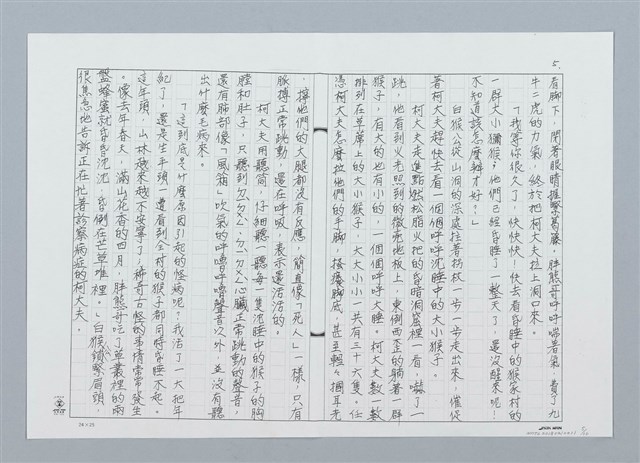 5.
看腳下,閉著眼睛握緊葛藤,胖熊哥呼呼喘著氣,費了九
牛二虎的力氣,終於把柯大夫拉上洞口來。
「我等你很久了,快快快,快去看昏睡中的猴家村的
一群大小獼猴。他們已經昏睡了一整天了,還沒醒來呢!
不知道該怎麼辦才好?」
白猴公從山洞的深處拄著拐杖一步一步走出來,催促
著柯大夫趕快去看一個個呼呼沈睡中的大小猴子。
柯大夫走進點燃松脂火把的昏暗洞窟裡一看,嚇了一
跳,他看到火光照到的微亮地板上,東倒西歪的躺著一群
猴子,有大的也有小的,一個個呼呼大睡。柯大夫數一數
排列在草蓆上的大小猴子,大大小小一共有三十六隻。任
憑柯大夫怎麼拉他們的手腳,搔癢腳底,甚至輕輕摑耳光
,擰他們的大腿都沒有反應,簡直像「死人」一樣,只有
脈搏正常跳動,還在呼吸,表示還活活的。
柯大夫用聽筒,仔細聽一聽每一隻沈睡中的猴子的胸
膛和肚子,只聽到ㄉㄉㄨ、ㄉㄉㄨ心臟正常跳動的聲音,
還有肺部像「風箱」吹氣的呼嚕呼嚕聲音以外,並沒有聽
出什麼毛病來。
「這到底是什麼原因引起的怪病呢?我活了一大把年
紀了,還是生平頭一遭看到全村的猴子都同時昏睡不起。
這年頭,山林越來越不安寧了,稀奇古怪的事情常常發生
。像去年春天,滿山花香的四月,胖熊哥吃了草叢裡的兩
盤蜂蜜就昏昏沈沈,昏倒在芒草堆裡。」白猴公鎖緊眉頭,
很焦急地告訴正在忙著診察病症的柯大夫。
24×25